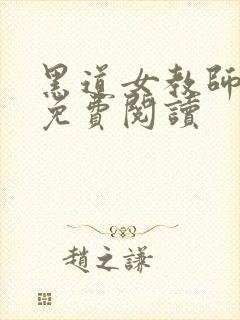 黑道女教師
免費閱讀
趙之謙